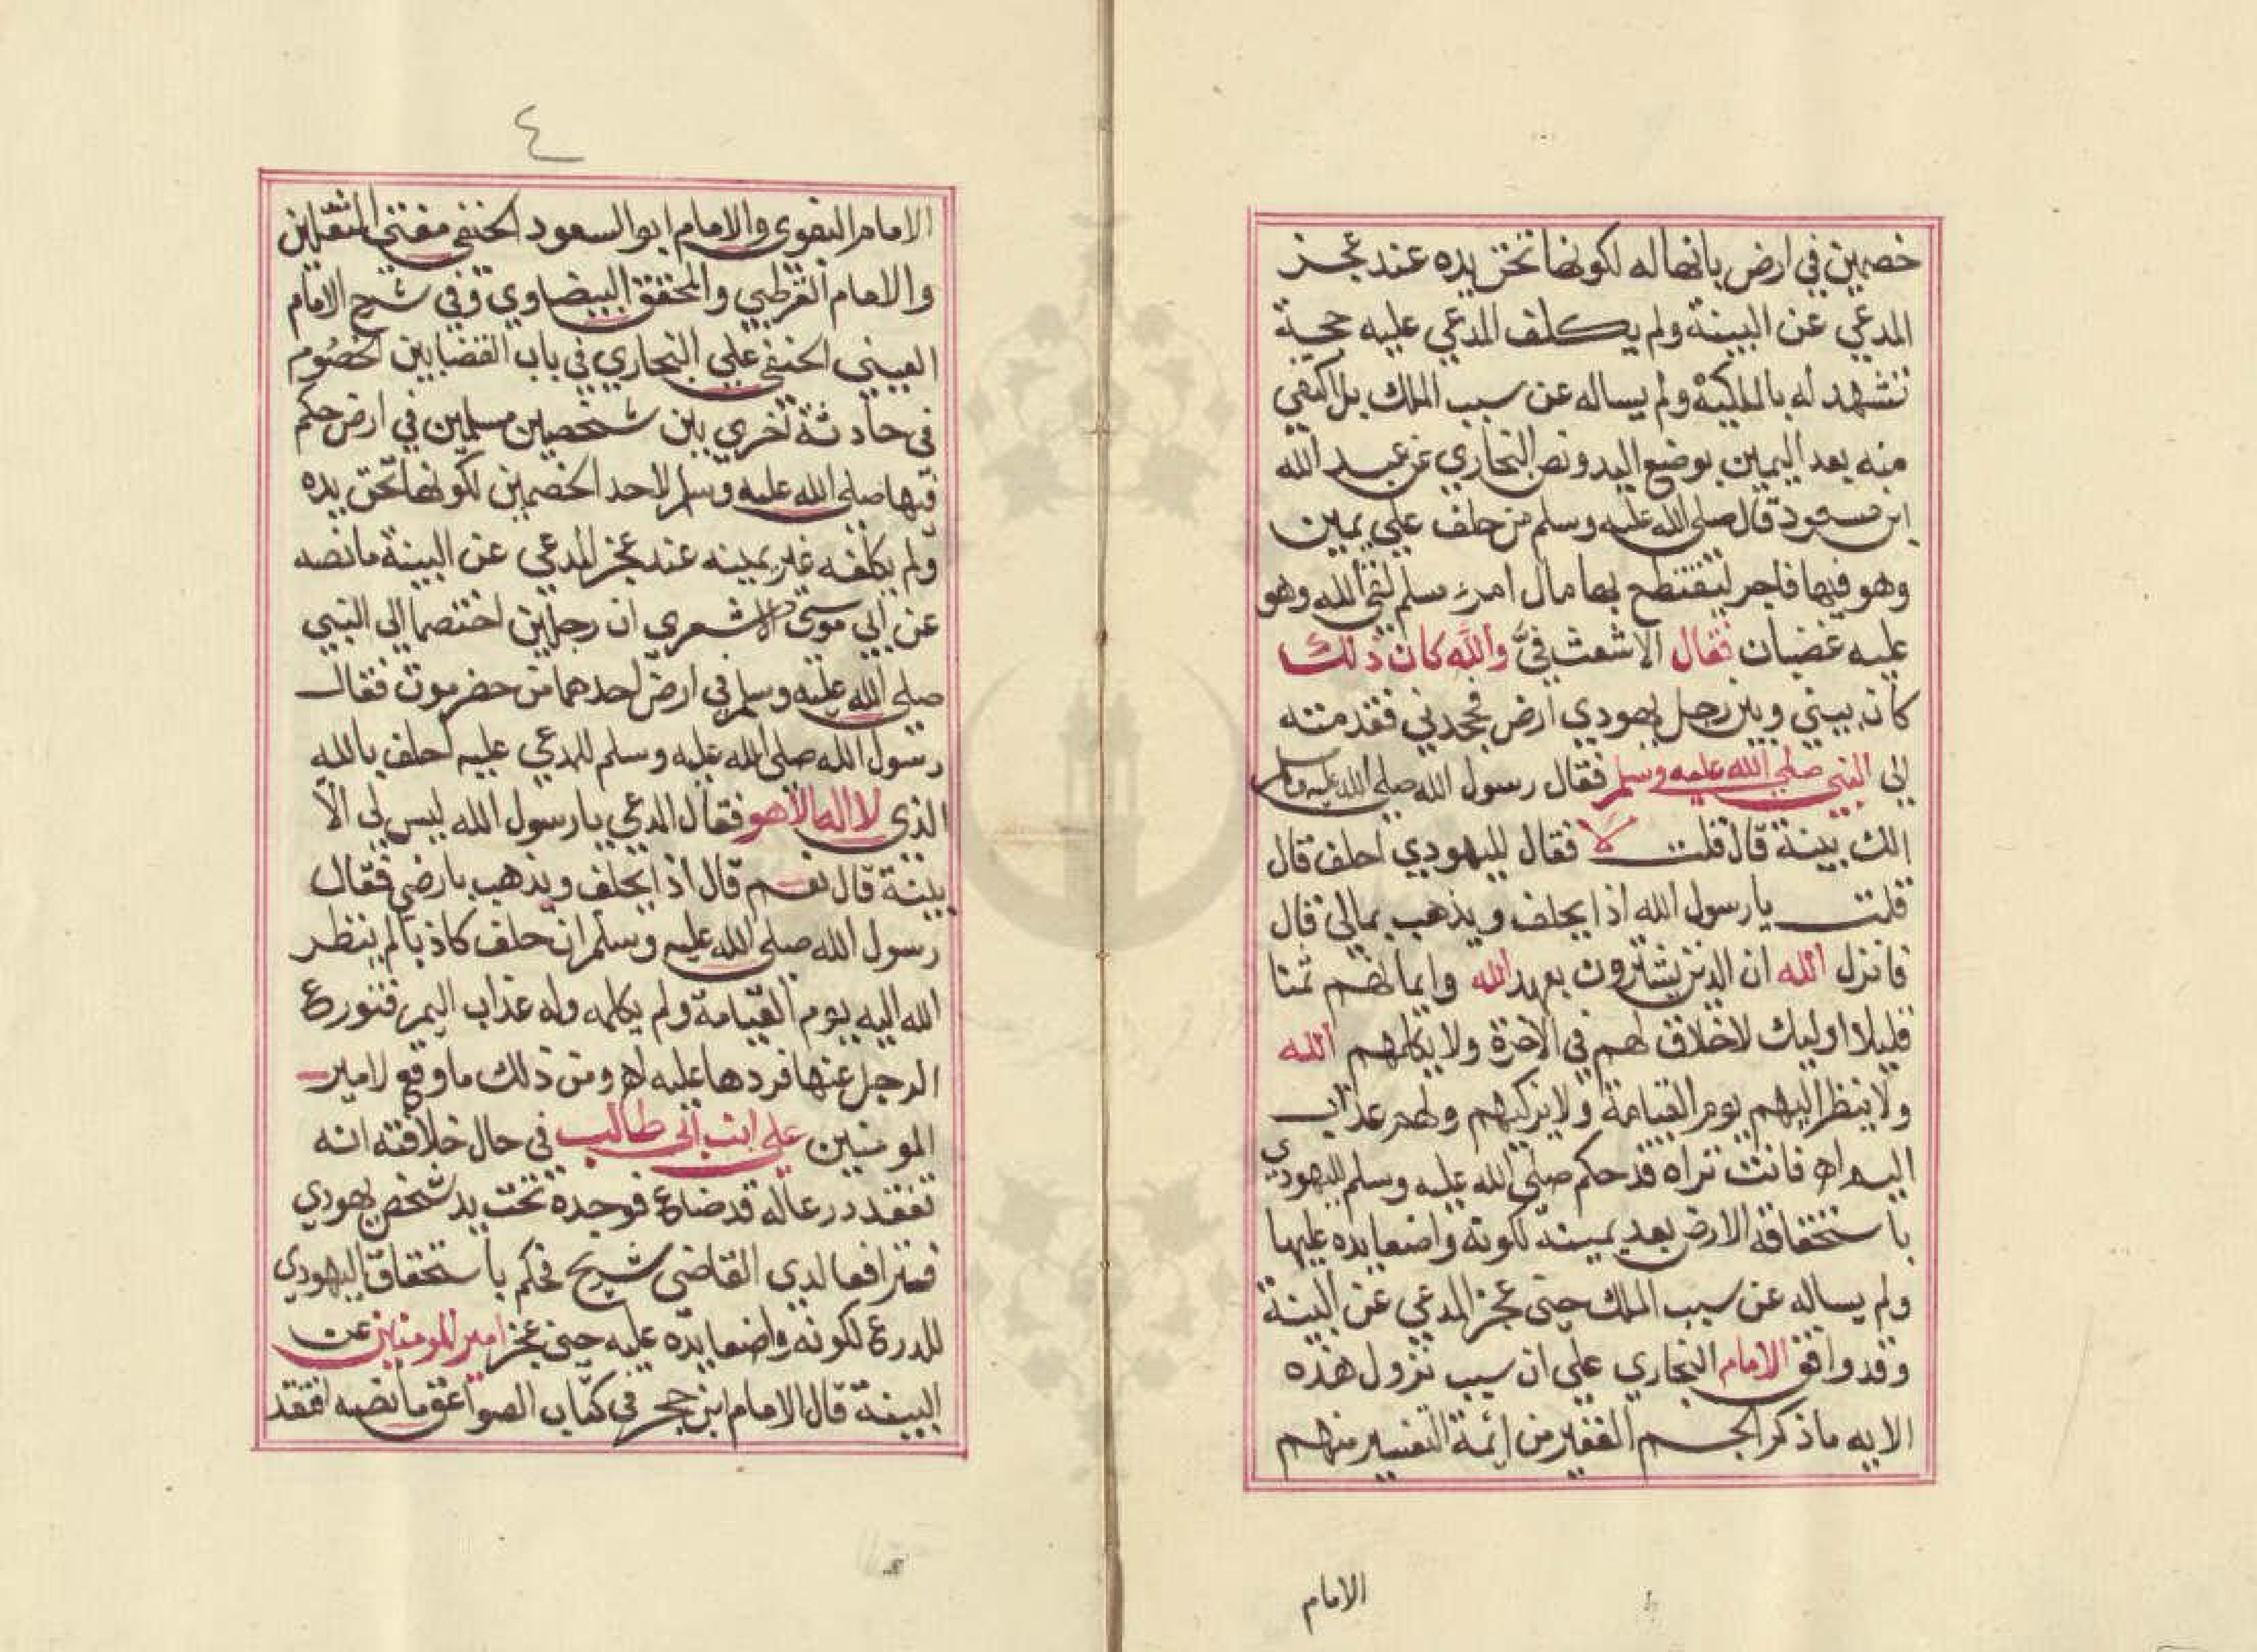 خصمين في ارض بانها له لكونها تحت يده عند عجز
المدعي عن البينة ولم يكلف المدعي عليه حجة
تشهد له بالملكية ولم يساله عن سبب الملك بل اكتفي
منه بعد اليمين بوضع اليد ونص البخاري عن عبد الله
ابن مسعود قال صلى الله عليه وسلم من حلف علي يمين
وهو فيها فاجر ليقتطع بها مال امرء مسلم لقي الله وهو
عليه غضبان فقال الاشعث فيّ والله كان ذلك
كان بيني وبين رجل يهودي ارض فجحدني فقدمته
الى النبي صلى الله عليه وسلم فقال رسول الله صلى الله عليه وسلم
الك بينة قال قلت لا فقال لليهودي احلف قال
قلت يا رسول الله اذا يحلف ويذهب بمالي قال
فانزل الله ان الذين يشترون بعهد الله وايمانهم ثمنا
قليلا اوليك لا خلاق لهم في الاخرة ولا يكلمهم الله
ولا ينظر اليهم يوم القيامة ولا يزكيهم ولهم عذاب
اليم اه فانت تراه قد حكم صلى الله عليه وسلم لليهودي
باستحقاقه الارض بعد يمينه لكونه واضعا يده عليها
ولم يساله عن سبب الملك حتى عجز المدعي عن البينة
وقد وافق الامام البخاري علي ان سبب نزول هذه
الايه ما ذكر الجم الغفير من ائمة التفسير منهم
الامام
٤
الامام البغوي والامام ابو السعود الحنفي مفتي الثقلين
والامام القرطبي والمحقق البيضاوي وفي شرح الامام
العيني الحنفي علي البخاري في باب القضا بين الخصوم
في حادثة اخري بين شخصين مسلمين في ارض حكم
فيها صلى الله عليه وسلم لاحد الخصمين لكونها تحت يده
ولم يكلفه غير يمينه عند عجز المدعي عن البينة ما نصه
عن ابي موسى الاشعري ان رجلين اختصما الى النبي
صلى الله عليه وسلم في ارض احدهما من حضرموت فقال
رسول الله صلى الله عليه وسلم للمدعي عليه احلف بالله
الذى لا اله الا هو فقال المدعي يا رسول الله ليس لى الا
يمينه قال نعم قال اذا يحلف ويذهب بارضي فقال
رسول الله صلى الله عليه وسلم ان حلف كاذبا لم ينظر
الله اليه يوم القيامة ولم يكلمه وله عذاب اليم فتورع
الرجل عنها فردها عليه اه ومن ذلك ما وقع لامير
المومنين علي ابن ابى طالب في حال خلافته انه
تفقد درعا له قد ضاع فوجده تحت يد شخص يهودي
فترافعا لدي القاضي شريح فحكم باستحقاق اليهودي
للدرع لكونه واضعا يده عليه حتى عجز امير المومنين عن
البينة قال الامام ابن حجر في كتاب الصواعق ما نصه افتقد